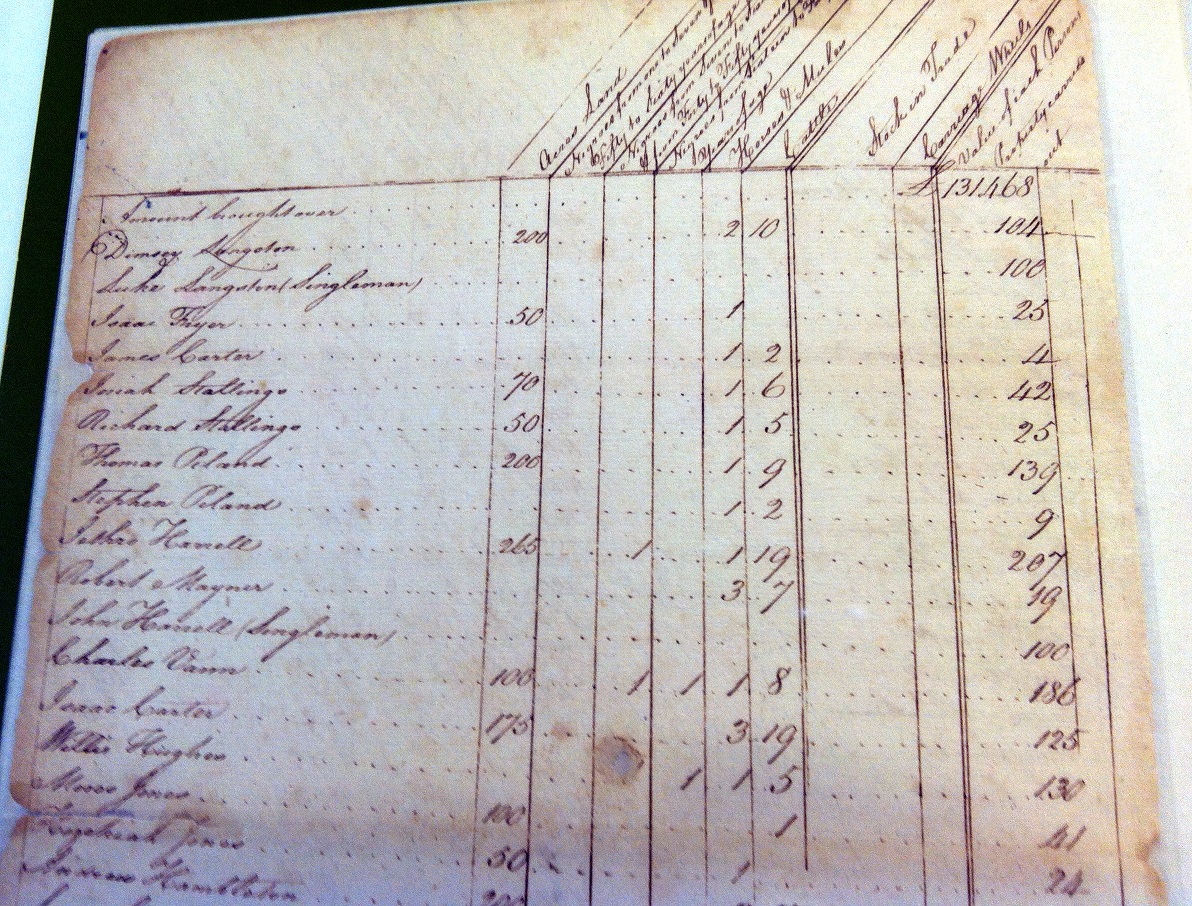 Acres Land
Negroes from one to Seven &
Fifty to Sixty years of age
Negroes from Seven to
from Forty to Fifty years of
Negroes from Sixteen to
Years of age
Horses & Mules
Cattle
Stock in Trade
Carriage Wheels
Value of each Persons
Property carried
out
Amount brought over £ 131468
Dimsey Langston 200 2 10 104
Luke Langston (Singleman) 100
Isaac Fryer 50 1 25
James Carter 1 2 4
Josiah Stallings 70 1 6 42
Richard Stallings 50 1 5 25
Thomas Piland 200 1 9 139
Stephen Piland 1 2 9
Harrell 265 1 1 19 207
Robert Mayner 3 7 19
John Harrell (Singleman) 100
Charles Vann 100 1 1 1 8 186
Isaac Carter 175 3 19 125
Willis Hughes 1 1 5 130
Moses Jones 100 1 41
Hezekiah Jones 50 1 24
Andrew Hambleton 200